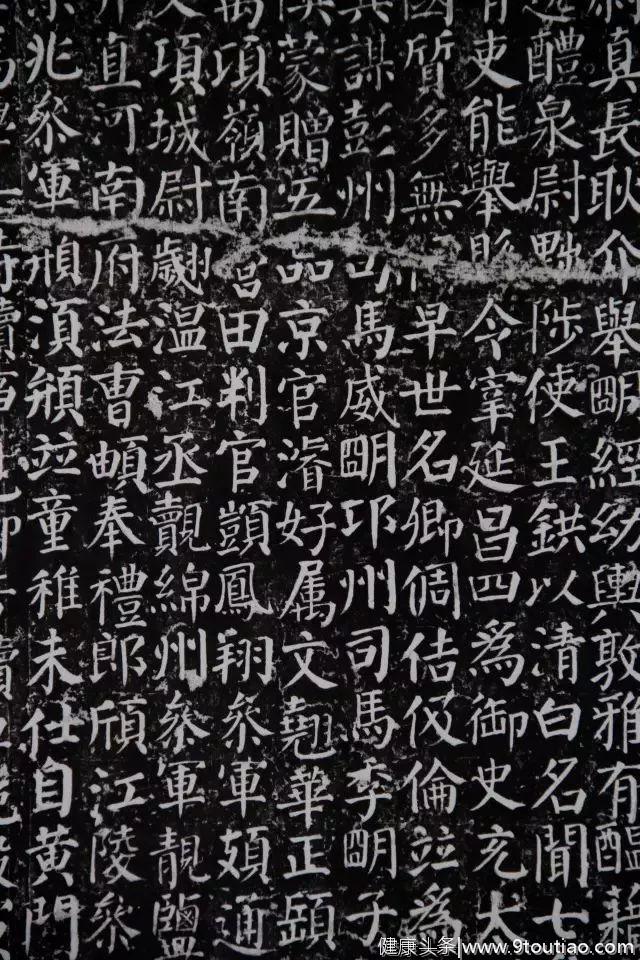 真長耿介舉明經幼輿敦雅有醞藉
醴泉尉黜陟使王鉷以清白名聞七
吏能舉縣令宰延昌四為御史充太
質多無祿早世名卿倜佶伋倫並為
謀彭州司馬威明邛州司馬季明子
蒙贈五品京官濬好屬文翹華正頤
項嶺南營田判官顗鳳翔參軍頗通
項城尉翽溫江丞覿綿州參軍靚鹽
直河南府法曹頔奉禮郎頎江陵參
兆參軍須並童稚未仕自黃門
健康头条|www.9toutiao.com